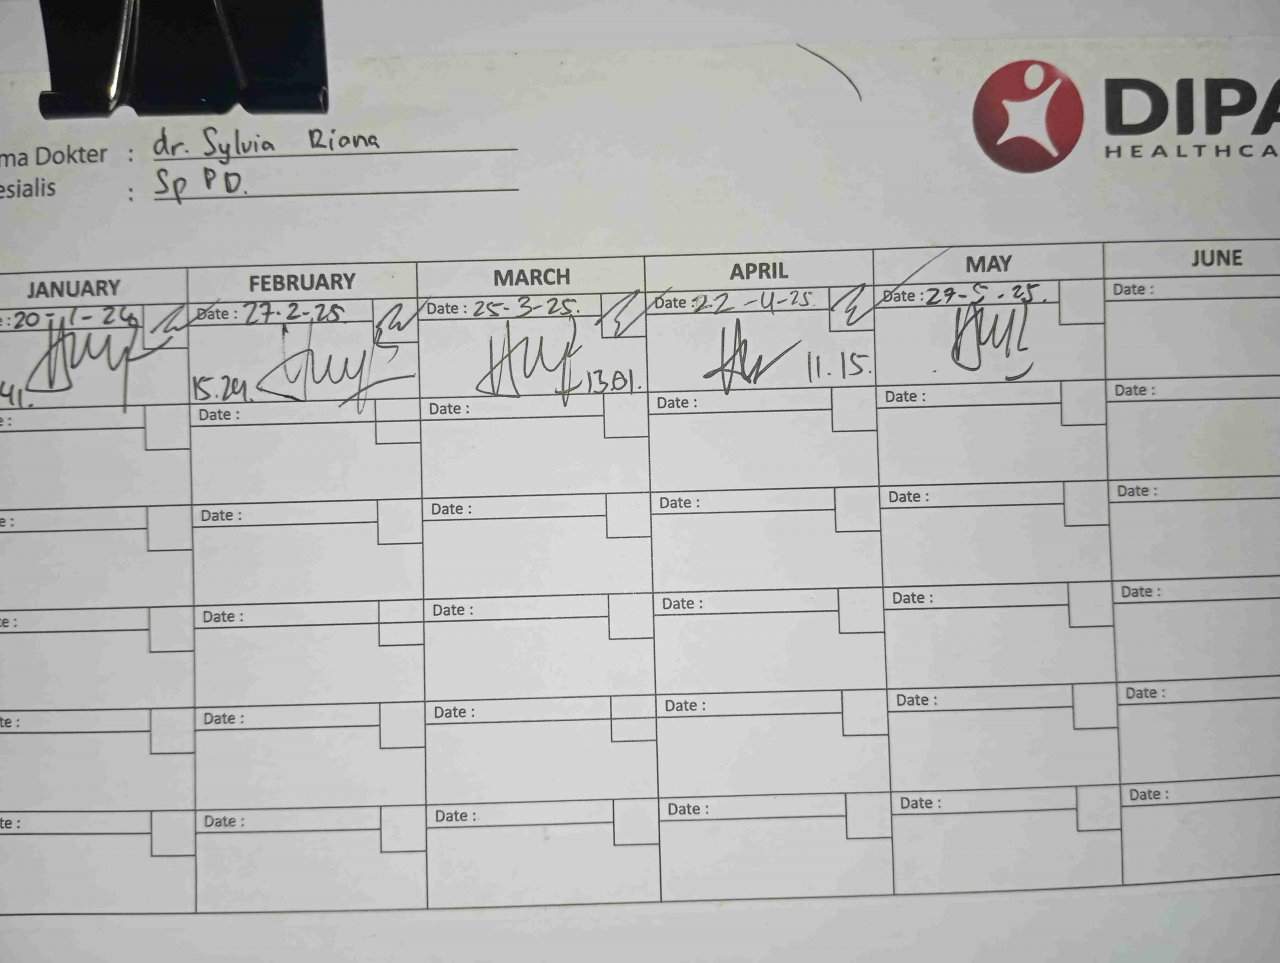 ma Dokter : dr. Sylvia Riana
esialis : Sp PD.
DIPA
HEALTHCA
JANUARY FEBRUARY MARCH APRIL MAY JUNE
: 20-11-24 Date : 27-2-25 Date : 25-3-25. Date : 22-4-25. Date : 27-5-25. Date :
41. 15.29. 13.01. 11.15.
e : Date : Date : Date : Date : Date :
e : Date : Date : Date : Date : Date :
te : Date : Date : Date : Date : Date :
te : Date : Date : Date : Date : Date :
te : Date : Date : Date : Date : Date :